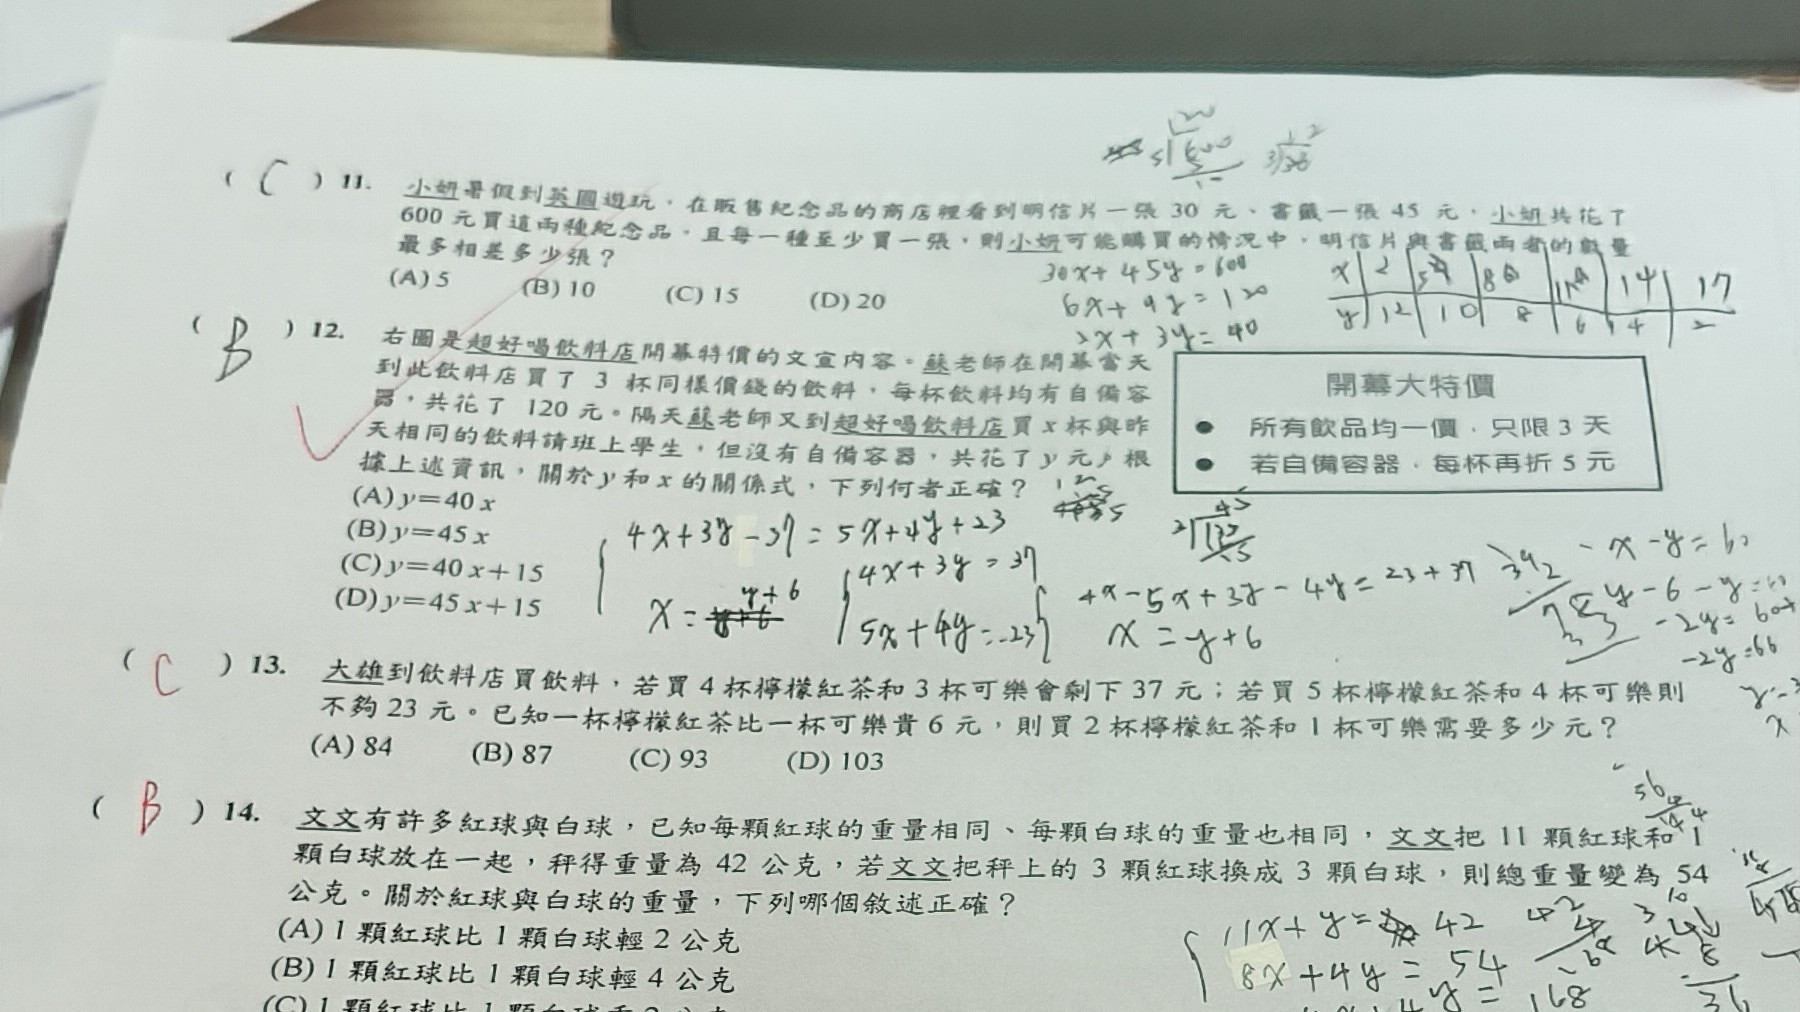 ( C ) 11. 小妍暑假到英國遊玩，在販售紀念品的商店裡看到明信片一張 30 元、書籤一張 45 元，小妍共花了
600 元買這兩種紀念品，且每一種至少買一張，則小妍可能購買的情況中，明信片與書籤兩者的數量
最多相差多少張？
(A) 5 (B) 10 (C) 15 (D) 20
30x+45y=600
6x+9y=120
2x+3y=40
x 2 5 8 11 14 17
y 12 10 8 6 4 2
( B ) 12. 右圖是超好喝飲料店開幕特價的文宣內容。蘇老師在開幕當天
到此飲料店買了 3 杯同樣價錢的飲料，每杯飲料均有自備容
器，共花了 120 元。隔天蘇老師又到超好喝飲料店買 x 杯與昨
天相同的飲料請班上學生，但沒有自備容器，共花了 y 元，根
據上述資訊，關於 y 和 x 的關係式，下列何者正確？
(A) y=40 x
(B) y=45 x
(C) y=40 x+15
(D) y=45 x+15
開幕大特價
● 所有飲品均一價，只限 3 天
● 若自備容器，每杯再折 5 元
4x+3y-37=5x+4y+23
x= y+6
4x+3y=37
5x+4y=-23
4x-5x+3y-4y=23+37
x=y+6
-x-y=60
-y-6-y=60
-2y=60+
-2y=66
( C ) 13. 大雄到飲料店買飲料，若買 4 杯檸檬紅茶和 3 杯可樂會剩下 37 元；若買 5 杯檸檬紅茶和 4 杯可樂則
不夠 23 元。已知一杯檸檬紅茶比一杯可樂貴 6 元，則買 2 杯檸檬紅茶和 1 杯可樂需要多少元？
(A) 84 (B) 87 (C) 93 (D) 103
( B ) 14. 文文有許多紅球與白球，已知每顆紅球的重量相同、每顆白球的重量也相同，文文把 11 顆紅球和 1
顆白球放在一起，秤得重量為 42 公克，若文文把秤上的 3 顆紅球換成 3 顆白球，則總重量變為 54
公克。關於紅球與白球的重量，下列哪個敘述正確？
(A) 1 顆紅球比 1 顆白球輕 2 公克
(B) 1 顆紅球比 1 顆白球輕 4 公克
11x+y=42
8x+4y=54